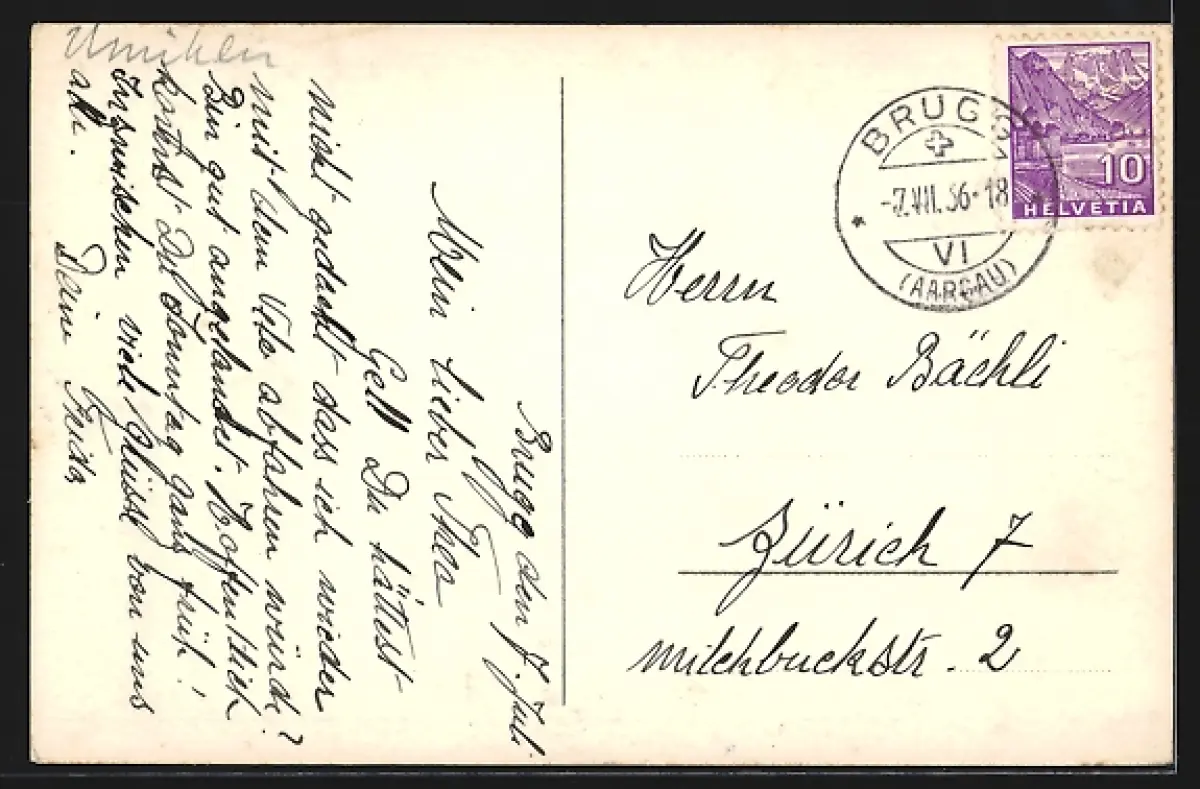 Umiken
Brugg den 7. Juli
Mein lieber Theo
Gell Du hättest
nicht gedacht dass ich wieder
mit dem Velo abfahren würde?
Bin gut angelandet. Hoffentlich
kommst Du Sonntag ganz früh!
Inzwischen viele Grüsse von uns
all.
Deine Freida
BRUGG
-7.VII.36-18
VI
(AARGAU)
10
HELVETIA
Herrn
Theodor Bächli
Zürich 7
Milchbuckstr. 2